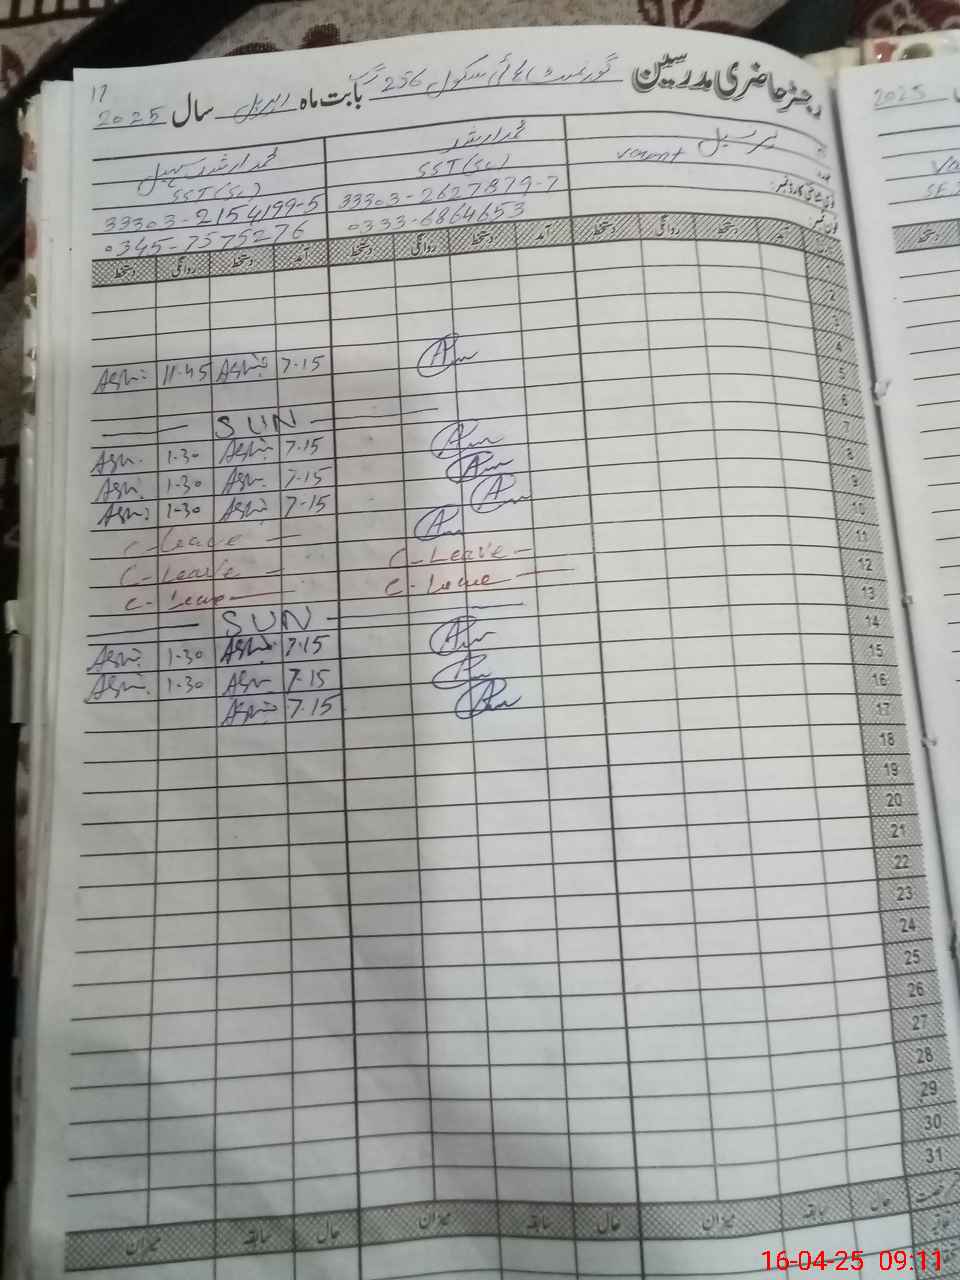 17
رجسٹر حاضری مدرسین گورنمنٹ ہائی سکول 256 گ ب بابت ماہ اپریل سال 2025
2025
پرنسپل محمد ارشد محمد ارشد سہیل
Vacant SST(Sc) SST(Sc)
33303-2627879-7 33303-2154199-5
0333-6864653 0345-7575276
آمد دستخط روانگی دستخط آمد دستخط روانگی دستخط آمد دستخط روانگی دستخط
دستخط
2
3
4
5
7-15 11-45
6
SUN
7
7-15 1-30
8
7-15 1-30
9
7-15 1-30
10
C-Leave
11
C-Leave C-Leave
12
C-Leave C-Leave
13
SUN
14
7-15 1-30
15
7-15 1-30
16
7-15
17
18
19
20
21
22
23
24
25
26
27
28
29
30
31
حال سابقہ میزان حال سابقہ میزان حال سابقہ میزان
16-04-25 09:11